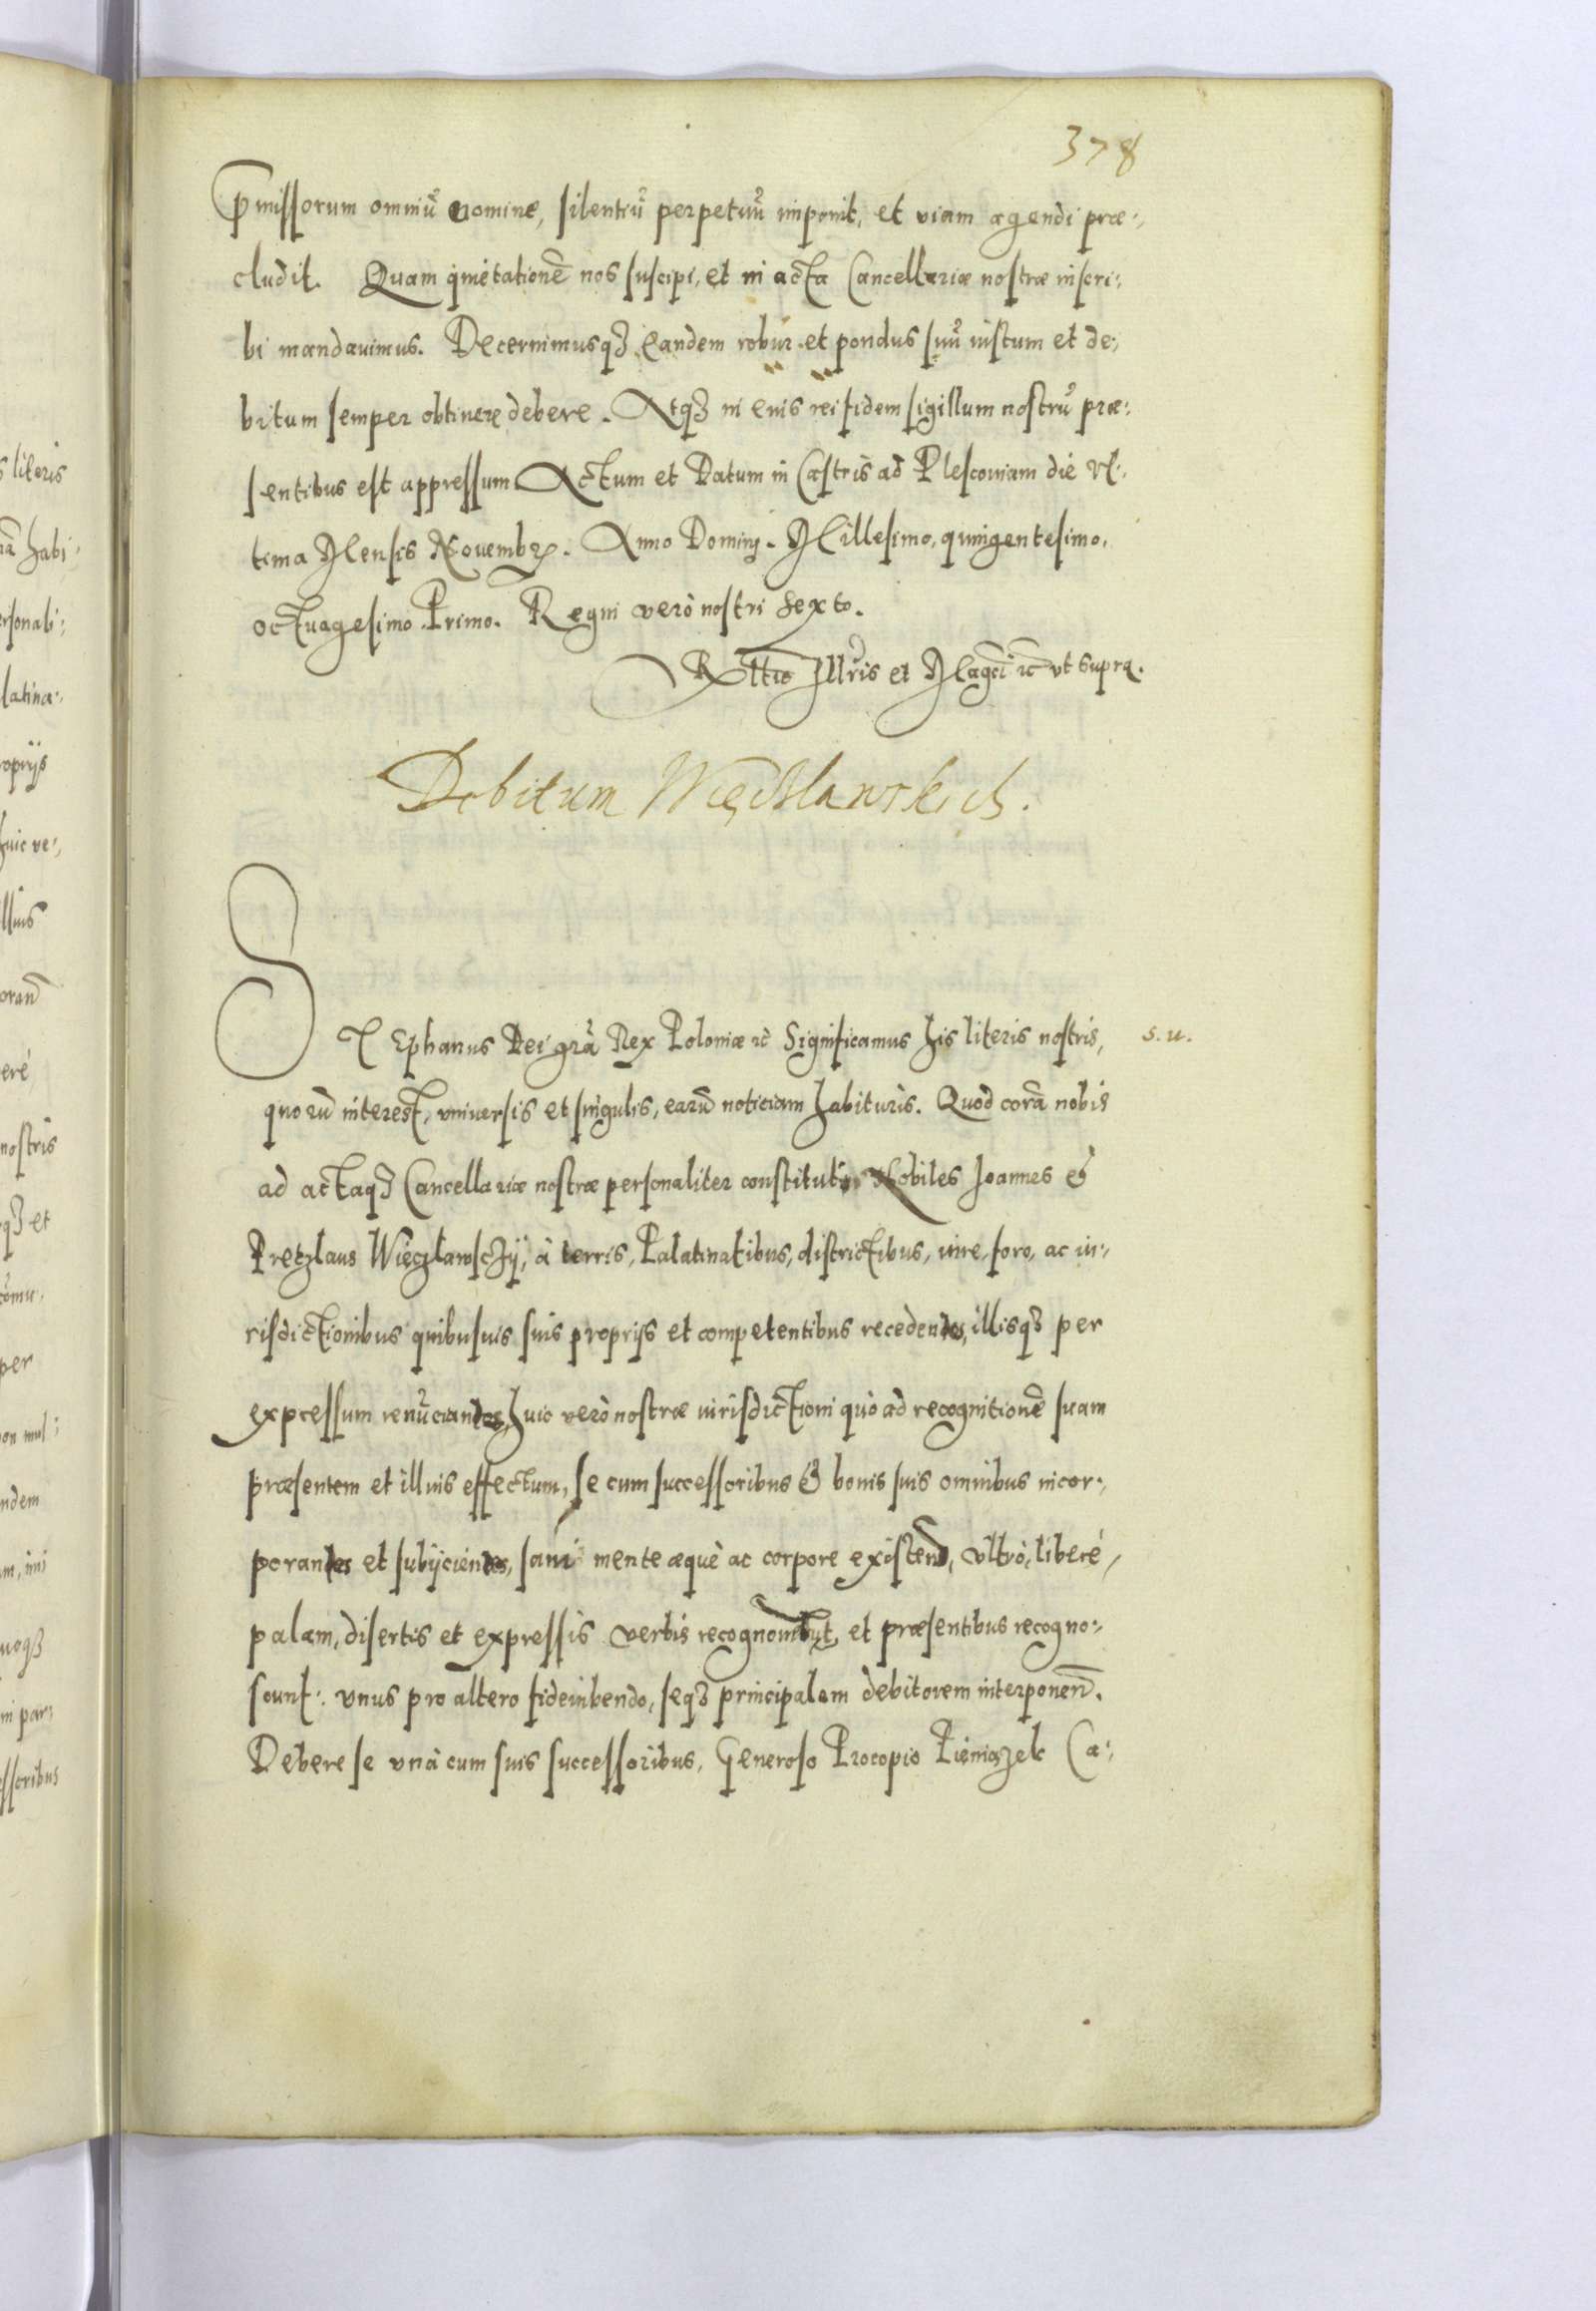 378
p̄missorum omniũ nomine, silentiũ perpetuũ imponit, et viam agendi præ:,
cludit. Quam quietationē nos suscipi, et in acta Cancellariæ nostræ inscri:,
bi mandauimus. Decernimusqȝ eandem robur et pondus suũ iustum et de:,
bitum semper obtinere debere. Atqȝ in eius rei fidem sigillum nostrũ præ:,
sentibus est appressum Actum et Datum in Castris ad Plescouiam die Vl:,
tima Mensis Nouembr. Anno Domini. Millesimo, quingentesimo,
octuagesimo Primo. Regni verò nostri Sexto.
Rltio Illris et Magci ꝛc vt supra.
Debitum
S
TEphanus Dei grã Rex Poloniæ ꝛc Significamus his literis nostris, s. u.
quorũ interest, vniuersis et singulis, earũ noticiam habituris. Quod corã nobis
ad actaqȝ Cancellariæ nostræ personaliter constituti Nobiles Joannes &
Pretzlaus Więczlawsczÿ, à terris, Palatinatibus, districtibus, iure, foro, ac iu:,
risdictionibus quibusuis suis proprijs et competentibus recedentes, illisqȝ per
expressum renũciandes, huic verò nostræ iurisdictioni quò ad recognitionē suam
præsentem et illius effectum, se cum successoribus & bonis suis omnibus incor:,
porandes et subijciendes, sani mente æquè ac corpore existend, vltrò, liberè,
palam, disertis et expressis verbis recognouerunt, et præsentibus recogno:,
scunt: vnus pro altero fideiubendo, seqȝ principalem debitorem interponen̄.
Debere se vnà cum suis successoribus, Generoso Procopio Pieniązek Ca:,